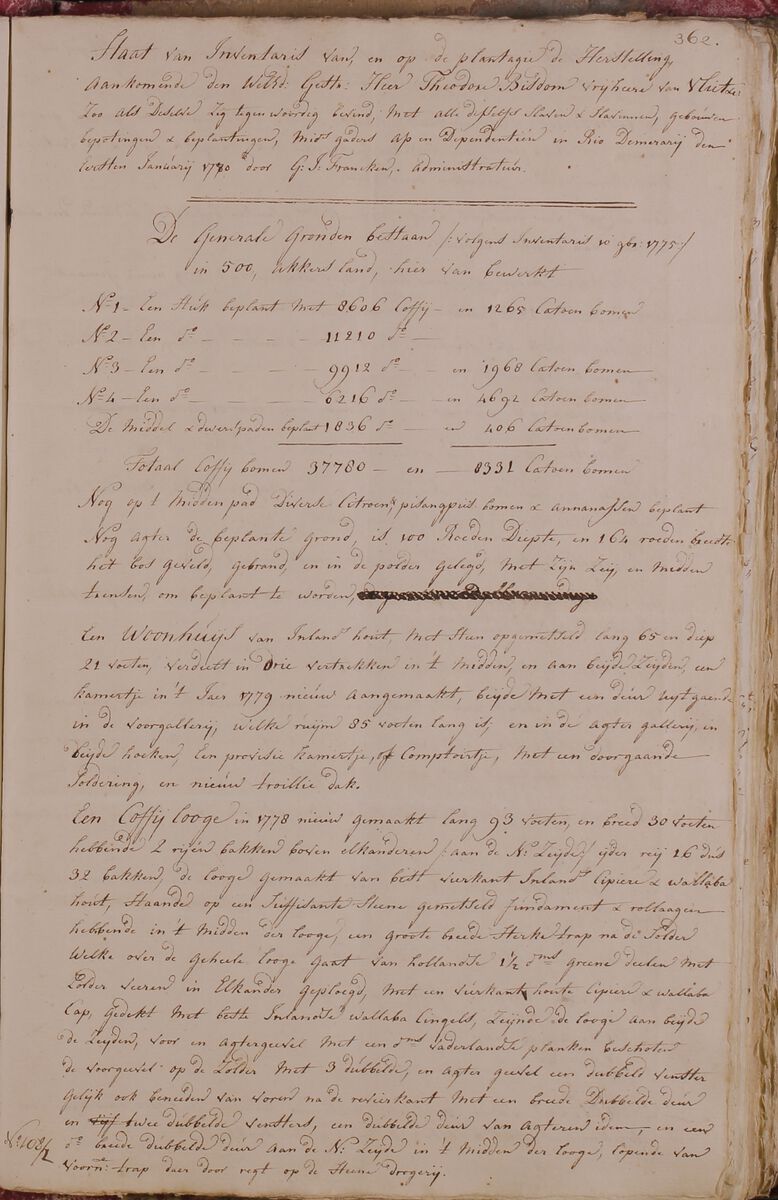 362.
Staat van Inventaris van, en op de plantagie de Herstelling,
Aankomende den WelEd: Gestr: Heer Theodore Bisdom vrijheere van Vliet &c:
Zoo als deselve zig tegenwoordig bevind, met alle desselfs Slaven & Slavinnen, gebouwen
bepotingen & beplantingen, mids gaders Ap en Dependentiën in Rio Demerarij den
eersten Januarij 1780 door G: J: Francken, Administrateur.
De Generale Gronden bestaan /:volgens Inventaris 10 gbr: 1775:/
in 500, akkers land, hier van bewerkt
N:o 1 – Een Stuk beplant met 8606 Coffij – en 1265 Catoen bomen
N:o 2 – Een d:o – – – – 11210 d:o –
N:o 3 – Een d:o – – – – 9912 d:o – en 1968 Catoen bomen
N:o 4 – Een d:o – – – – 6216 d:o – en 4692 Catoen bomen
De Middel & dwerspaden beplant 1836 d:o – en 406 Catoen bomen
Totaal Coffij bomen 37780 – en – 8331 Catoen bomen
Nog op 't Middenpad Diverse Citroen pisang bomen & annanassen beplant
Nog agter de beplante grond, is 100 Roeden Diepte, en 164 roeden breedte
het bos geveld, gebrand, en in de polder gelegd, met zijn Zeij, en midden
trensen, om beplant te worden,
Een Woonhuijs van Inlands hout, met Steen opgemetseld lang 65 en diep
21 voeten, verdeelt in drie vertrekken in 't midden, en aan beijde Zeijden, een
kamertje in 't Jaer 1779 nieuw aangemaakt, beijde met een deur uytgaende
in de voorgallerij, welke ruijm 85 voeten lang is, en in de agter gallerij, in
beijde hoeken, Een provisie kamertje, of Comptoirtje, met een doorgaande
Soldering, en nieuw troillie dak.
Een Coffij looge in 1778 nieuw gemaakt lang 93 voeten, en breed 30 voeten
hebbende 2 rijen bakken boven elkanderen /:aan de N: Zeyde:/ ijder reij 16 dus
32 bakken, de looge gemaakt van best vierkant Inlands Cipiere & wallaba
hout, Staande op een Suffisante Steene gemetseld fundament & rollaagen
hebbende in 't midden der looge, een groote breede Sterke trap na de Solder
Welke over de geheele looge gaat van hollandse 1½ d:ms greene deelen met
Losse veeren in Elkander geploegd, met een vierkant houte Cipiere & wallaba
Cap, gedekt met beste Inlandse wallaba Cingels, Zeijnde de looge aan beijde
de Zeijden, voor en Agtergevel met een d:ms vaderlandse planken beschoten
de voorgevel op de Zolder met 3 dubbelde, en agter gevel een dubbeld venster
gelijk ook beneden van voren na de revierkant met een breede Dubbelde deur
en twee dubbelde vensters, een dubbelde deur van agteren idem, en een
d:o breede dubbelde deur aan de N: Zeijde in 't midden der looge, lopende van
voorn: trap daer door regt op de Steene drogerij.